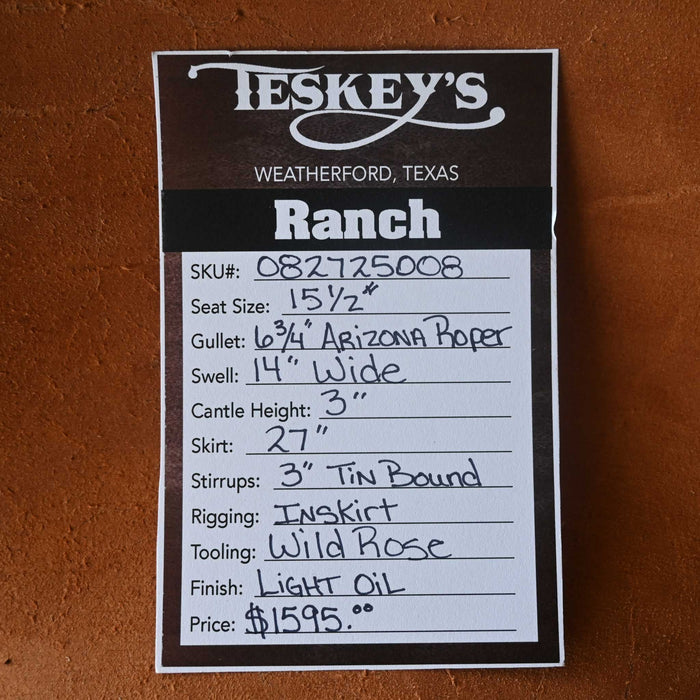 TESKEY'S
WEATHERFORD, TEXAS
Ranch
SKU#: 082725008
Seat Size: 15 1/2"
Gullet: 6 3/4" ARIZONA Roper
Swell: 14" Wide
Cantle Height: 3"
Skirt: 27"
Stirrups: 3" TiN Bound
Rigging: INSKirt
Tooling: Wild Rose
Finish: LiGHT OiL
Price: $1595.00